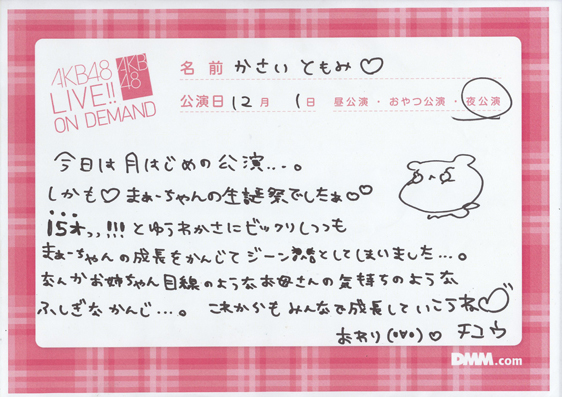 AKB48
LIVE!!
ON DEMAND
AKB
48
名前 かさい ともみ♡
公演日 12月 1日 昼公演・おやつ公演・夜公演
今日は月はじめの公演...。
しかも♡まぁーちゃんの生誕祭でしたぁ♡♡
15才っっ!!!とゆうわかさにビックリしつつも
まぁーちゃんの成長をかんじてジーンとしてしまいました...。
なんかお姉ちゃん目線のようなお母さんの気持ちのような
ふしぎなかんじ...。これからもみんなで成長していこうね♡
おわり(・∀・)♡ チユウ
DMM.com